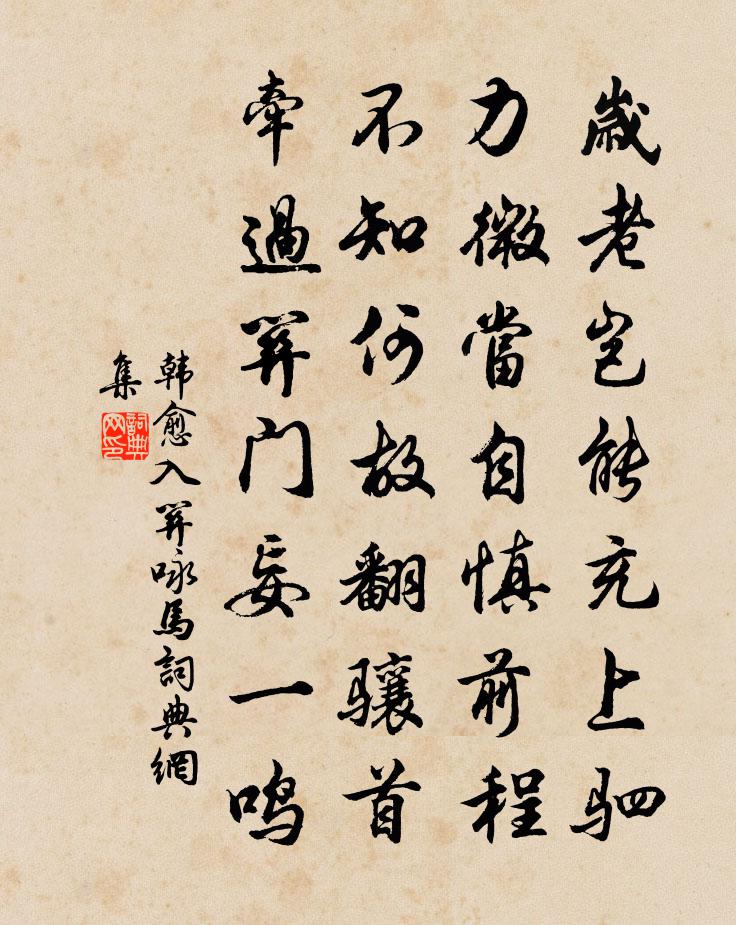 歲老岂能充上驷
力微當自慎前程
不知何故翻骧首
牽過関門妄一鸣
韩愈入関咏馬詞典網
集
詞典
网印